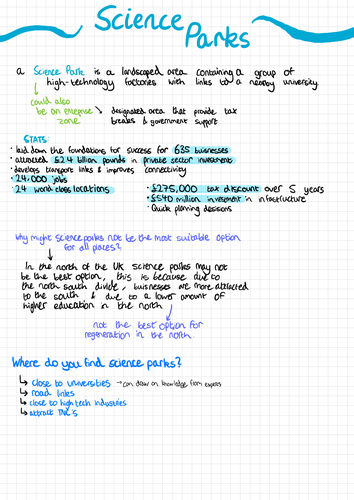 Science
Parks
a Science Park is a landscaped area containing a group of
high-technology factories with links to a nearby university
could also
be an enterprise
zone
designated area that provide tax
breaks & government support
STATS
• laid down the foundations for success for 635 businesses
• attracted £2.4 billion pounds in private sector investment
• develops transport links & improves connectivity
• 24,000 jobs
• 24 world class locations
• £275,000 tax discount over 5 years
• £540 million investment in infastructure
• Quick planning decisions
Why might science parks not be the most suitable option
for all places?
In the north of the UK science parks may not
be the best option, this is because due to
the north south divide, businesses are more attracted
to the south & due to a lower amount of
higher education in the north
not the best option for
regeneration in the north.
Where do you find science parks?
↳ close to universities → can draw on knowledge from experts
↳ road links
↳ close to high tech industries
↳ attract TNC's